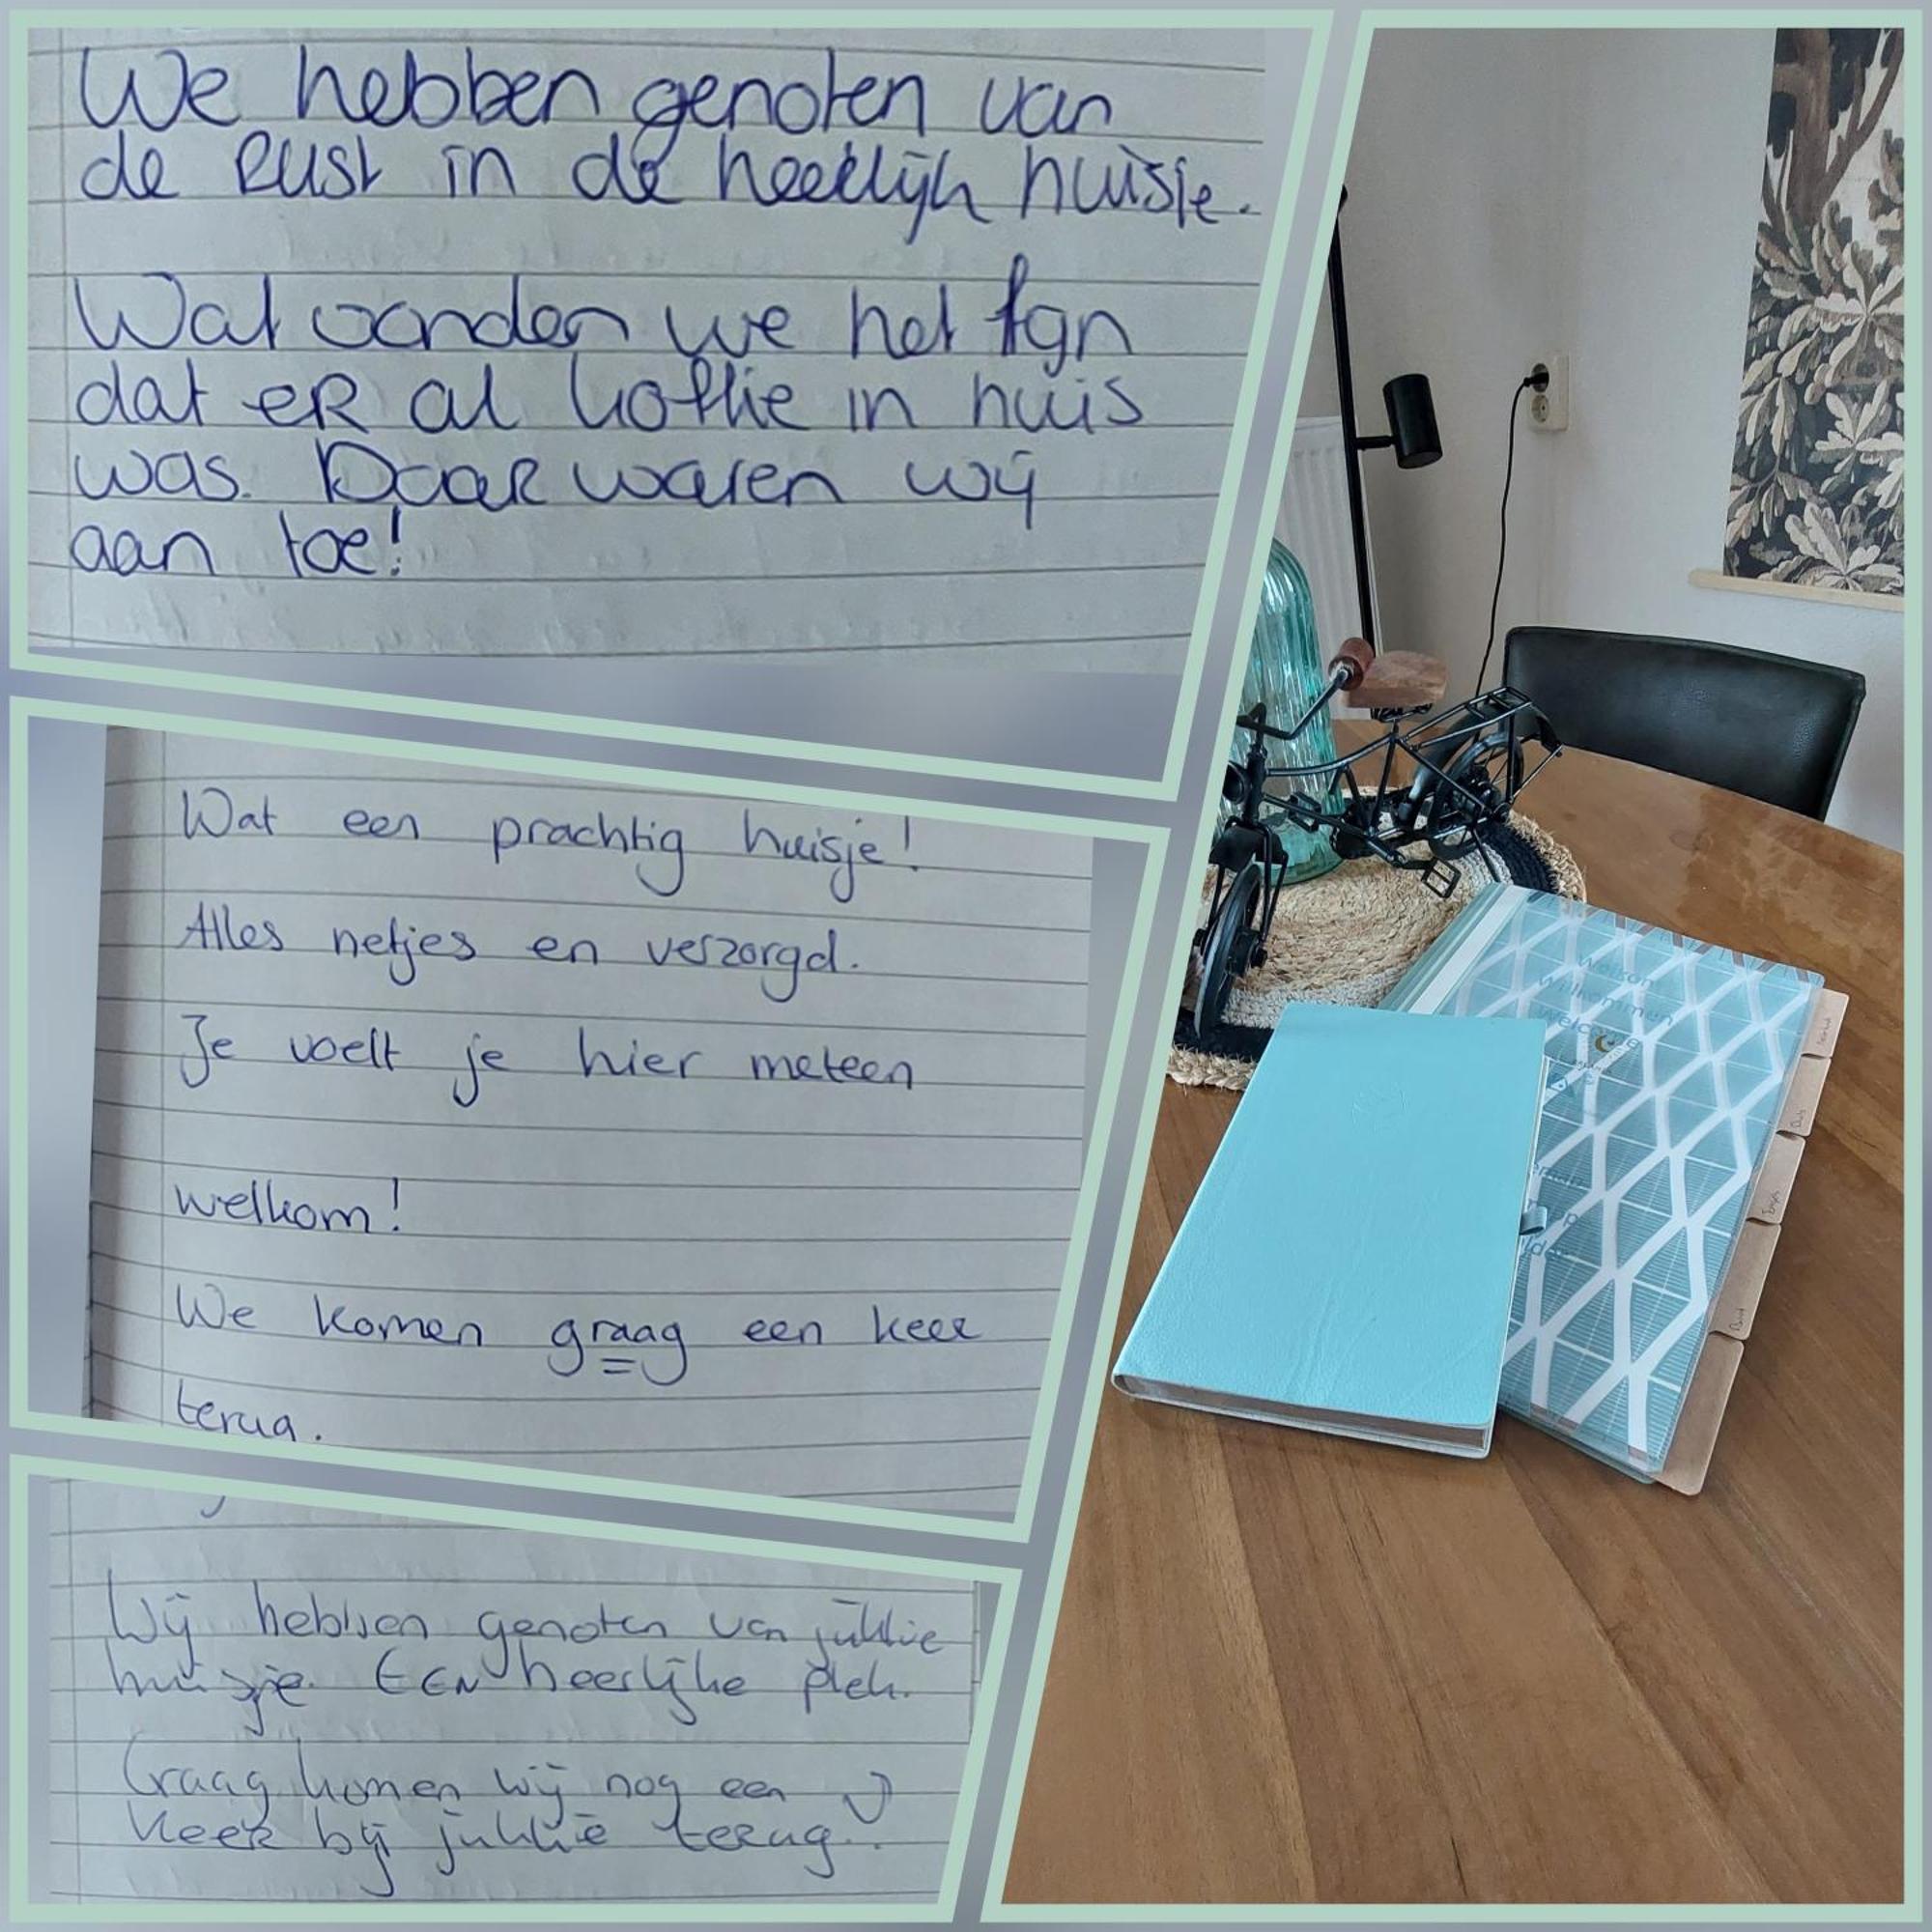 We hebben genoten van
de Rust in de heerlijk huisje.
Wat vonden we het fijn
dat eR al koffie in huis
was. DaaR waren wij
aan toe!
Wat een prachtig huisje!
Alles netjes en verzorgd.
Je voelt je hier meteen
welkom!
We komen graag een keer
terug.
Wij hebben genoten van jullie
huisje. EEN heerlijke plek.
Graag komen wij nog een
keeR bij jullie teRug.
Welkom
Willkommen
Welcome